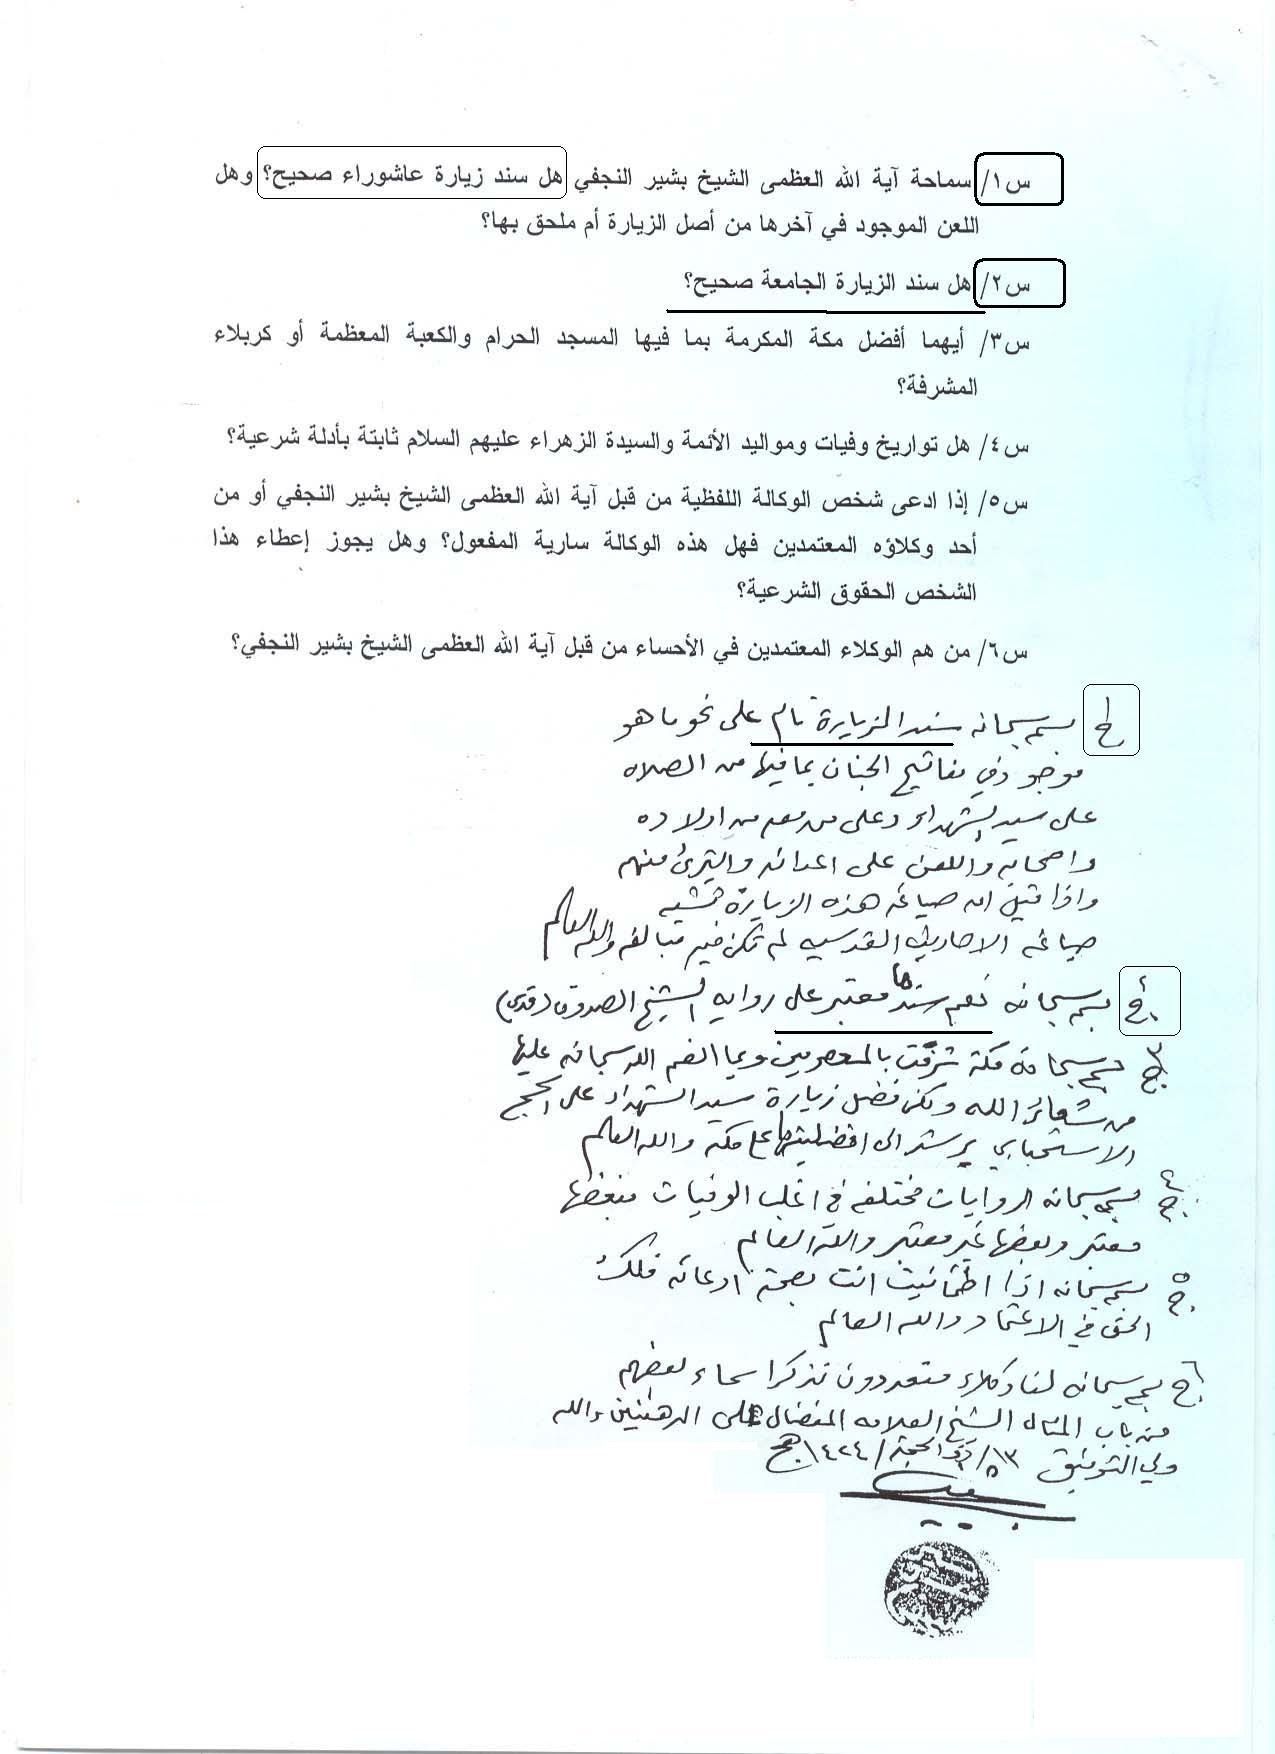 س١/ سماحة آية الله العظمى الشيخ بشير النجفي هل سند زيارة عاشوراء صحيح؟ وهل
اللعن الموجود في آخرها من أصل الزيارة أم ملحق بها؟
س٢/ هل سند الزيارة الجامعة صحيح؟
س٣/ أيهما أفضل مكة المكرمة بما فيها المسجد الحرام والكعبة المعظمة أو كربلاء
المشرفة؟
س٤/ هل تواريخ وفيات ومواليد الأئمة والسيدة الزهراء عليهم السلام ثابتة بأدلة شرعية؟
س٥/ إذا ادعى شخص الوكالة اللفظية من قبل آية الله العظمى الشيخ بشير النجفي أو من
أحد وكلاؤه المعتمدين فهل هذه الوكالة سارية المفعول؟ وهل يجوز إعطاء هذا
الشخص الحقوق الشرعية؟
س٦/ من هم الوكلاء المعتمدين في الأحساء من قبل آية الله العظمى الشيخ بشير النجفي؟
ج١ بسمه سبحانه سند الزيارة تام على نحو ما هو
موجود في مفاتيح الجنان بما فيها من الصلاة
على سيد الشهداء وعلى من معه من اولاده
واصحابه واللعن على اعدائه والتبرئ منهم
واذا قيل ان صياغة هذه الزيارة تشبه
صياغة الاحاديث القدسيه لم تكن فيه مبالغه والله العالم
ج٢ بسمه سبحانه نعم سندها معتبر على روايه الشيخ الصدوق (قدس)
ج٣ بسمه سبحانه مكة شرفت بالمعصومين وبما انعم الله سبحانه عليها
من شعائر الله ولكن فضل زيارة سيد الشهداء على الحج
الاستحبابي يرشد الى افضليتها على مكة والله العالم
ج٤ بسمه سبحانه الروايات مختلفه في اغلب الوفيات فبعضها
معتبر وبعضها غير معتبر والله العالم
ج٥ بسمه سبحانه اذا اطمأنيت انت بصحة ادعائه فلك
الحق في الاعتماد والله العالم
ج٦ بسمه سبحانه لنا وكلاء متعددون نذكر اسماء بعضهم
من باب المثال الشيخ العلامه المفضال على الدهنين والله
ولي التوفيق ١٣/ ذو الحجة/ ١٤٢٤هج